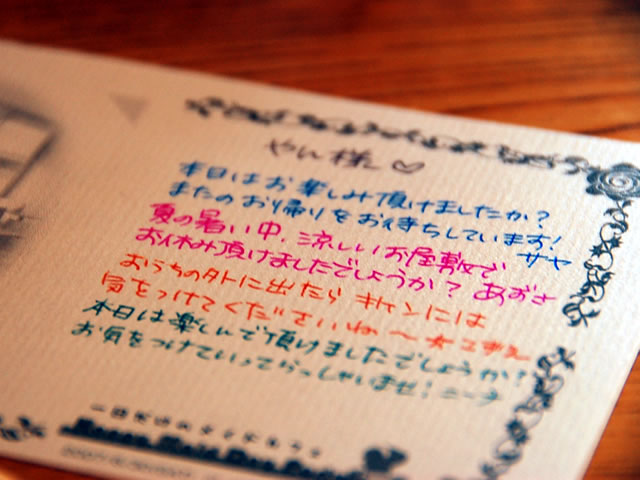 やん様♡
本日はお楽しみ頂けましたか?
またのお帰りをお待ちしています! サヤ
夏の暑い中、涼しいお屋敷で
お休み頂けましたでしょうか? あずさ
おうちの外に出たら キケンには
気をつけてくださいね〜
本日は楽しんで頂けましたでしょうか?
お気をつけていってらっしゃいませ! ニーナ